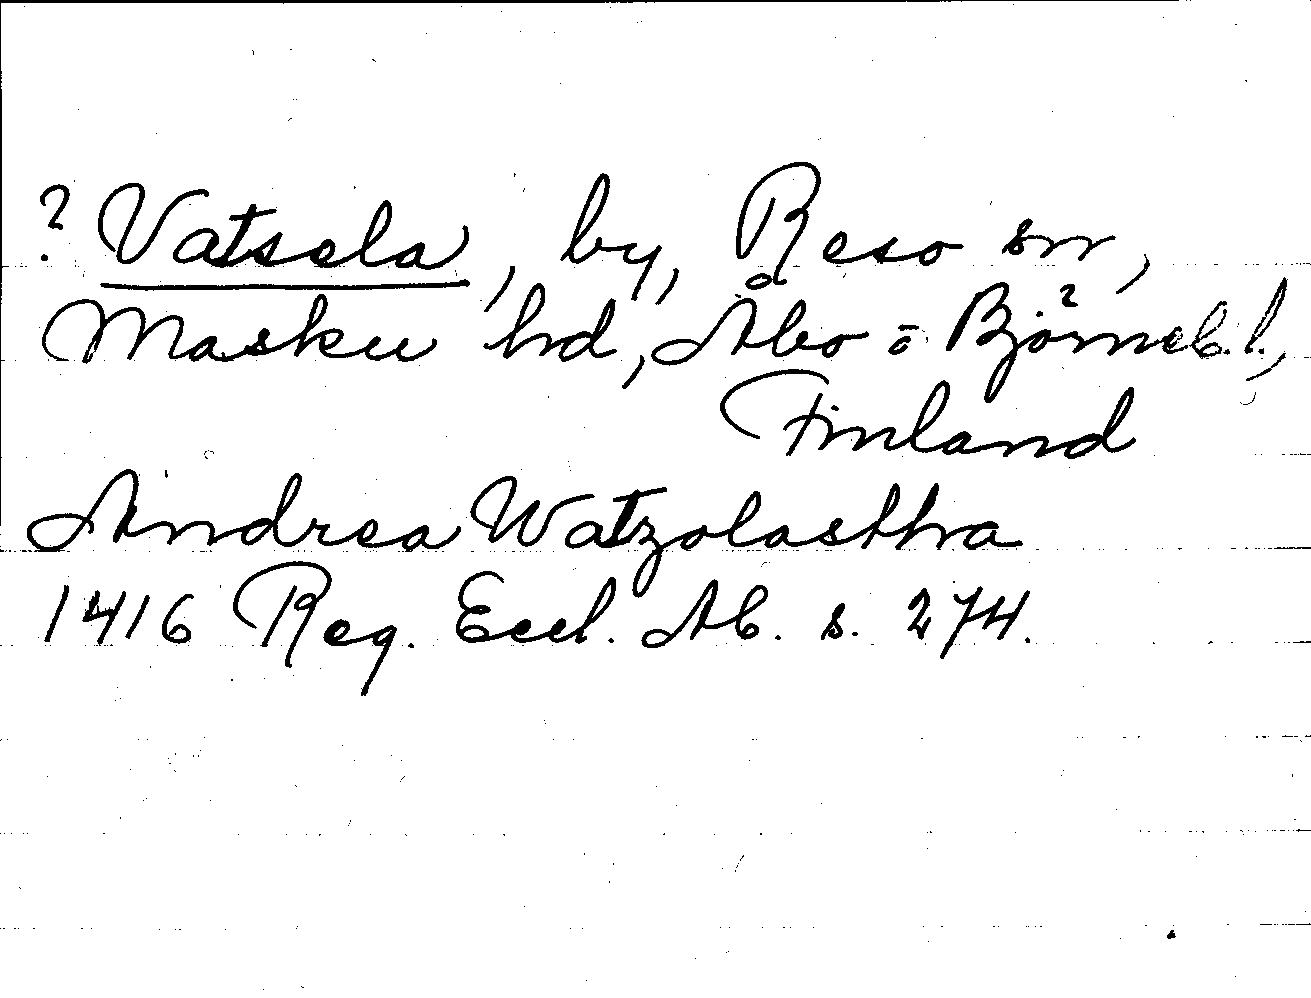 ? Vatsela, by, Reso sn,
Masku hd, Åbo o Björneb. l.,
Finland
Andrea Watzolasthra
1416 Reg. Eccl. Ab. s. 274.